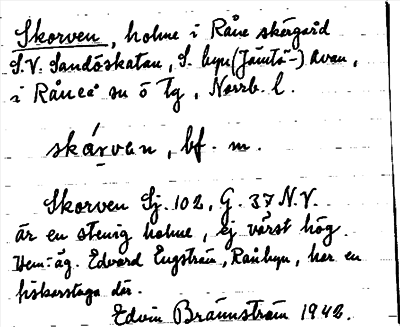 Skorven, holme i Råne skärgård
S.V. Sandöskatan, S. byn (Jämtö-) Avan,
i Råneå sn ö tg, Norrb. l.
skǻrvan, bf. m.
Skorven Sj. 102, G. 37 N.V.
är en stenig holme, ej värst hög
Hem. äg. Edvard Engström, Rånbyn, har en
fiskarstuga där.
Edvin Brännström 1942.